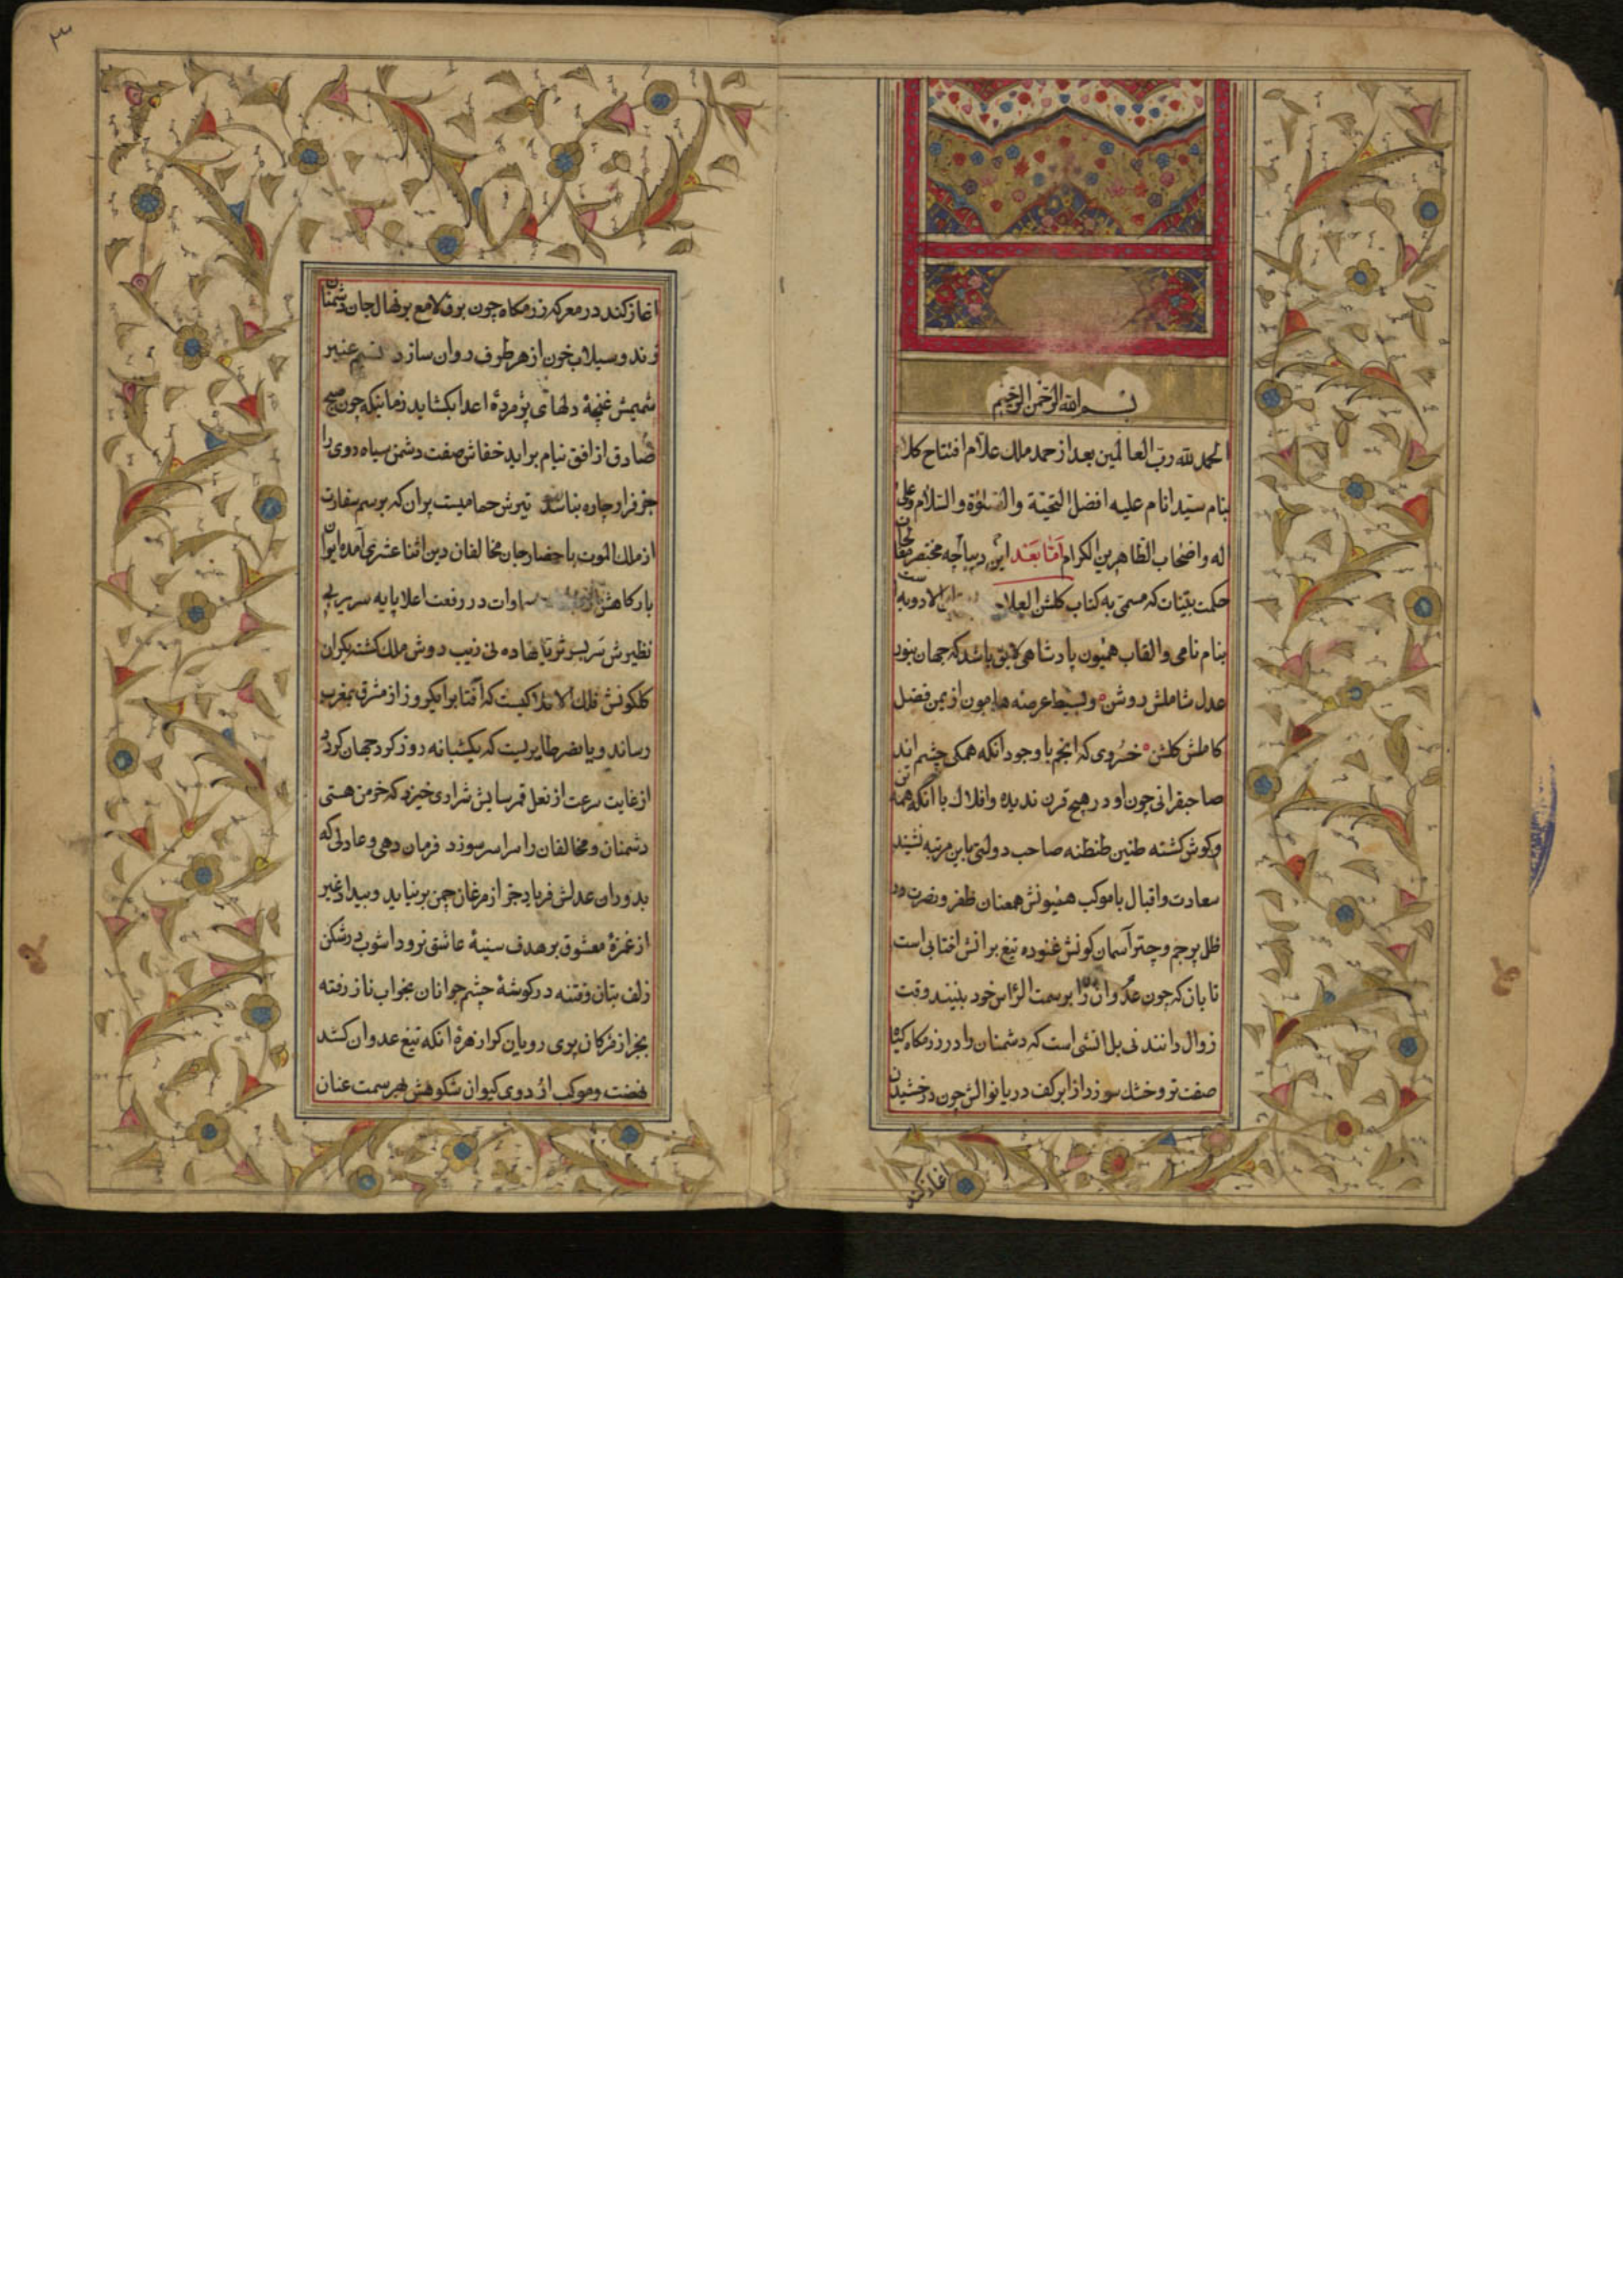 بسم الله الرحمن الرحیم
الحمد لله رب العالمین بعد از حمد ملک علام افتتاح کلام
بنام سید انام علیه افضل التحیة والصلوة والسلام وعلی
اله واضحاب الطاهرین الکرام اما بعد این دیباچه مختصر
حکمت بینات که مسمی به کتاب کلشن العلاج الادویه
بنام نامی والقاب همیون پادشاهی لایق باشد که جهان بنور
عدل شاملش روشن وبسیط عرصه هامون از یمن فضل
کاملش کلشن خسروی که انجم با وجود انکه همکی چشم اند
صاحبقرانی چون او در هیچ قرن ندیده وافلاک با انکه همه تن
کوش کشته طنین طنطنه صاحب دولتی باین مرتبه نشنید
سعادت واقبال با موکب همیونش همعنان ظفر ونصرت در
ظل پرچم وچتر آسمان کونش غنوده تیغ برانش افتابی است
تابان که چون عدوان را برسمت الراس خود بینند وقت
زوال دانند نی بل اتشی است که دشمنان را در رزمکاه کیاه
صفت تر وخشک سوزد از ابر کف دریا نوالش چون درخشیدن
اغاز کند
اغاز کند در معرکه رزمکاه چون برق لامع بر نهال جان دشمنان
زند وسیلاب خون از هر طرف روان سازد نسیم عنبر
شمیمش غنچهٔ دلهای پژمردهٔ اعدا بکشاید زمانیکه چون صبح
صادق از افق نیام براید خفاش صفت دشمن سیاه روی را
جز فرار چاره نباشد تیرش حمامیست پران که برسم سفارت
از ملک الموت باحضار جان مخالفان دین اثنا عشری آمده ایوان
بارکاهش سماوات در رفعت اعلا پایه سریر بی
نظیرش سر بسر ثریا نهاده نی زیب دوش ملک کشته یکران
کلکونش فلک الافلاکیست که افتاب را بیکروز از مشرق بمغرب
رساند ویا نسر طایریست که بیکشبانه روز کرد جهان کردد
از غایت سرعت از نعل قمرسایش شراری خیزد که خرمن هستی
دشمنان ومخالفان را سراسر سوزد فرمان دهی وعادلی که
بدوران عدلش فریاد جز از مرغان چمن برنیاید وبیداد غیر
از غمزهٔ معشوق بر هدف سینهٔ عاشق نرود اشوب در شکن
زلف بتان وفتنه در کوشهٔ چشم جوانان بخواب ناز رفته
بجز از مژکان پری رویان کرا زهرهٔ انکه تیغ عدوان کشد
نهضت وموکب از روی کیوان شکوهش بهر سمت عنان